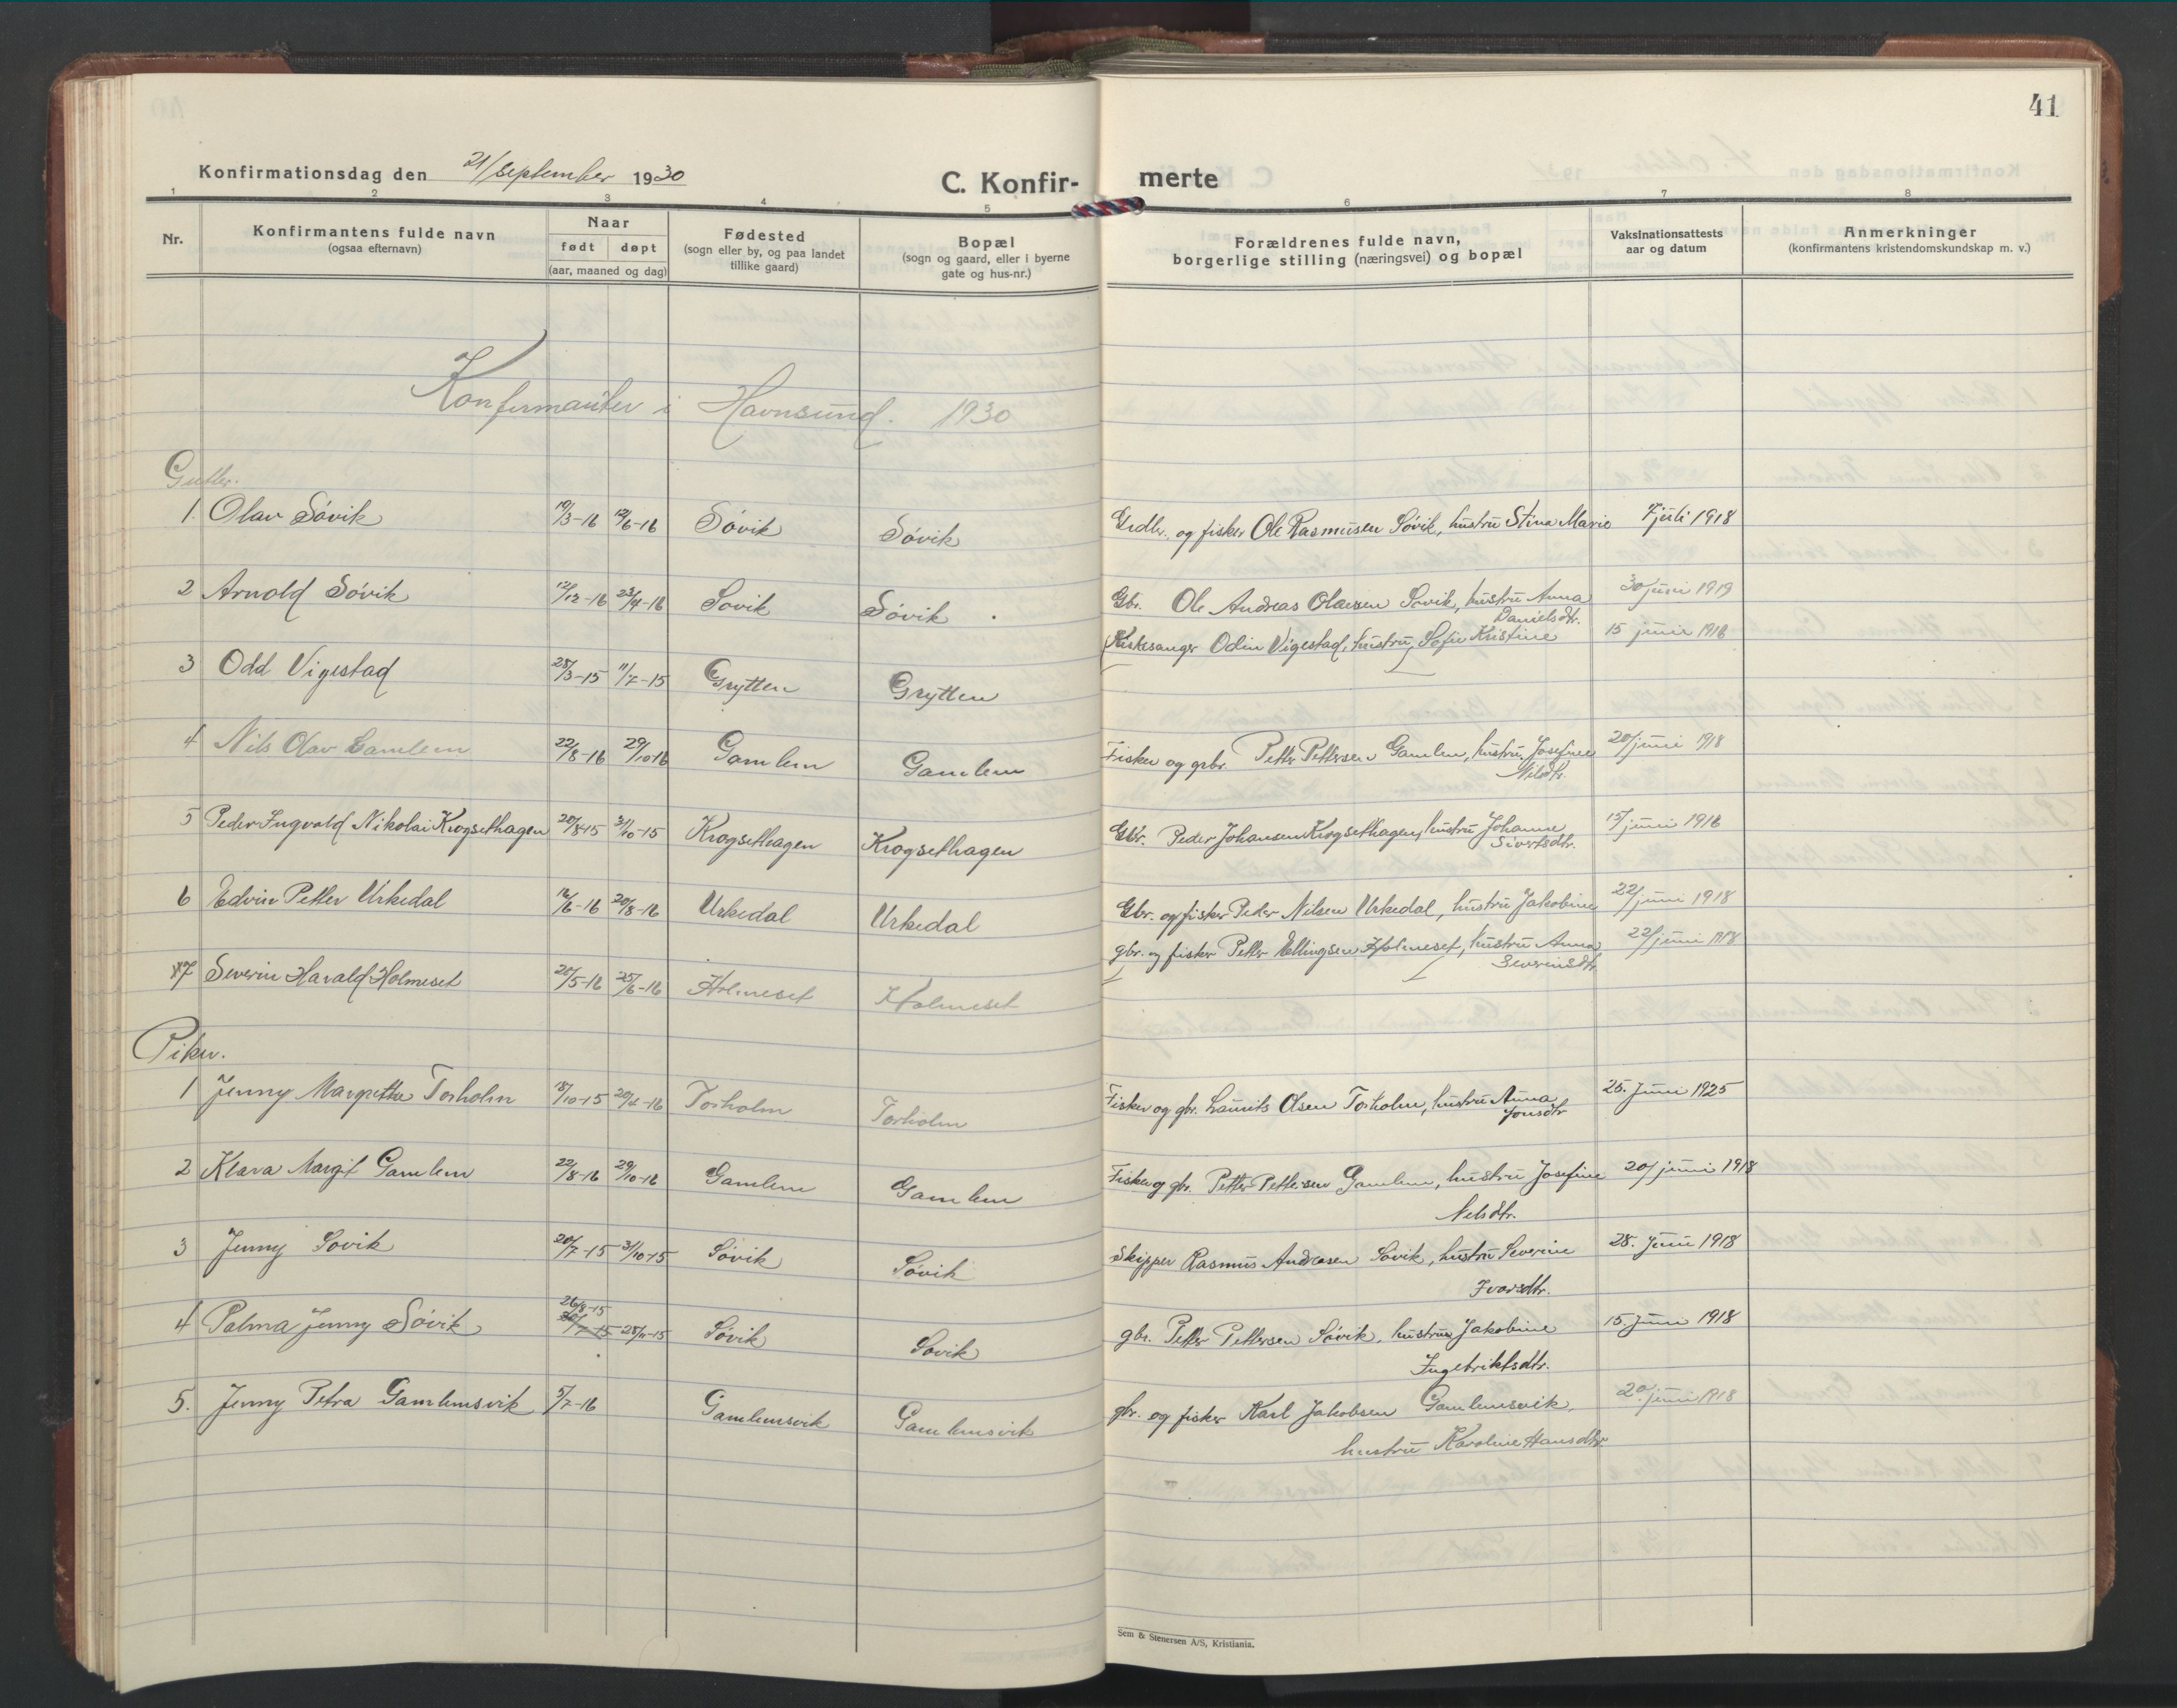 41
Konfirmationsdag den 21/september 1930
C. Konfir- merte
1 2 3 4 5 6 7 8
Nr. Konfirmantens fulde navn (ogsaa efternavn) Naar født døpt (aar, maaned og dag) Fødested (sogn eller by, og paa landet tillike gaard) Bopæl (sogn og gaard, eller i byerne gate og hus-nr.) Forældrenes fulde navn, borgerlige stilling (næringsvei) og bopæl Vaksinationsattests aar og datum Anmerkninger (konfirmantens kristendomskundskap m. v.)
Konfirmanter i Havnsund. 1930
Gutter.
1. Olav Søvik 19/3-16 12/6-16 Søvik Søvik Grdbr. og fisker Ole Rasmusen Søvik, hustru Stina Marie 7 juli 1918
2 Arnold Søvik 12/12-16 23/4-16 Søvik Søvik Gbr. Ole Andreas Olausen Søvik, hustru Anna Danielsdtr. 30 juni 1919
3 Odd Vigestad 28/3-15 11/7-15 Grytten Grytten Kirkesanger Odin Vigestad, hustru Sofie Kristine 15 juni 1916
4 Nils Olav Gamlem 22/8-16 29/10 16 Gamlem Gamlem Fisker og grbr. Petter Pettersen Gamlem, hustru Josefine Nilsdtr. 20/juni 1918
5 Peder Ingvald Nikolai Krogsethagen 20/8-15 31/10-15 Krogsethagen Krogsethagen Gbr. Peder Johansen Krogsethagen, hustru Johanne Sivertsdtr. 15/juni 1916
6 Edvin Petter Urkedal 16/6-16 20/8-16 Urkedal Urkedal Gbr. og fisker Peder Nilsen Urkedal, hustru Jakobine 22/juni 1918
7 Severin Harald Holmeset 25/5-16 25/6-16 Holmeset Holmeset gbr. og fisker Petter Ellingsen Holmeset, hustru Anna Severinsdtr. 22/juni 1918
Piker.
1 Jenny Margrethe Torholm 18/10-15 20/4-16 Torholm Torholm Fisker og gbr. Laurits Olsen Torholm, hustru Anna Jonsdtr 25. Juni 1925
2 Klara Margit Gamlem 22/8-16 29/10-16 Gamlem Gamlem Fisker og gbr. Petter Pettersen Gamlem, hustru Josefine Nelsdtr. 20/juni 1918
3 Jenny Søvik 20/7-15 31/10-15 Søvik Søvik Skipper Rasmus Andreasen Søvik, hustru Severine Ivarsdtr. 28. Juni 1918
4 Palma Jenny Søvik 26/8-15 20/7-15 28/11-15 Søvik Søvik gbr. Petter Pettersen Søvik, hustru Jakobine Ingebriktsdtr. 15. Juni 1918
5. Jenny Petra Gamlemsvik 5/7-16 Gamlemsvik Gamlemsvik gbr. og fisker Karl Jakobsen Gamlemsvik, hustru Karoline Hansdtr 20. juni 1918
Sem & Stenersen A/S, Kristiania.